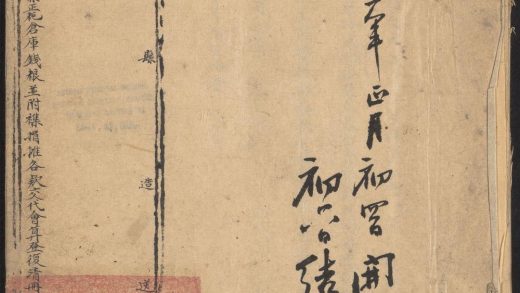 年正月初四日開
初六日結
縣造送
倉庫錢粮並附襍捐攤各款交代會算登復清冊